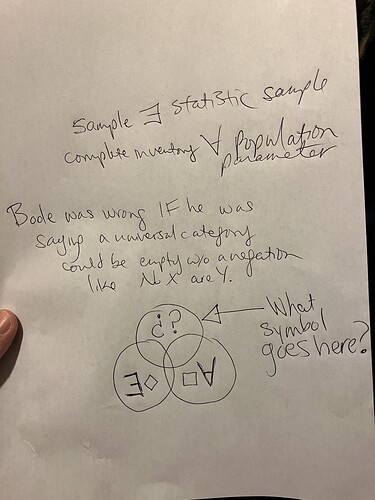 sample ∃ statistic sample
complete inventory ∀ population
parameter
Bode was wrong IF he was
saying a universal category
could be empty w/o a negation
like No X are Y.
¿?
∃◇
□∀
What
symbol
goes here?